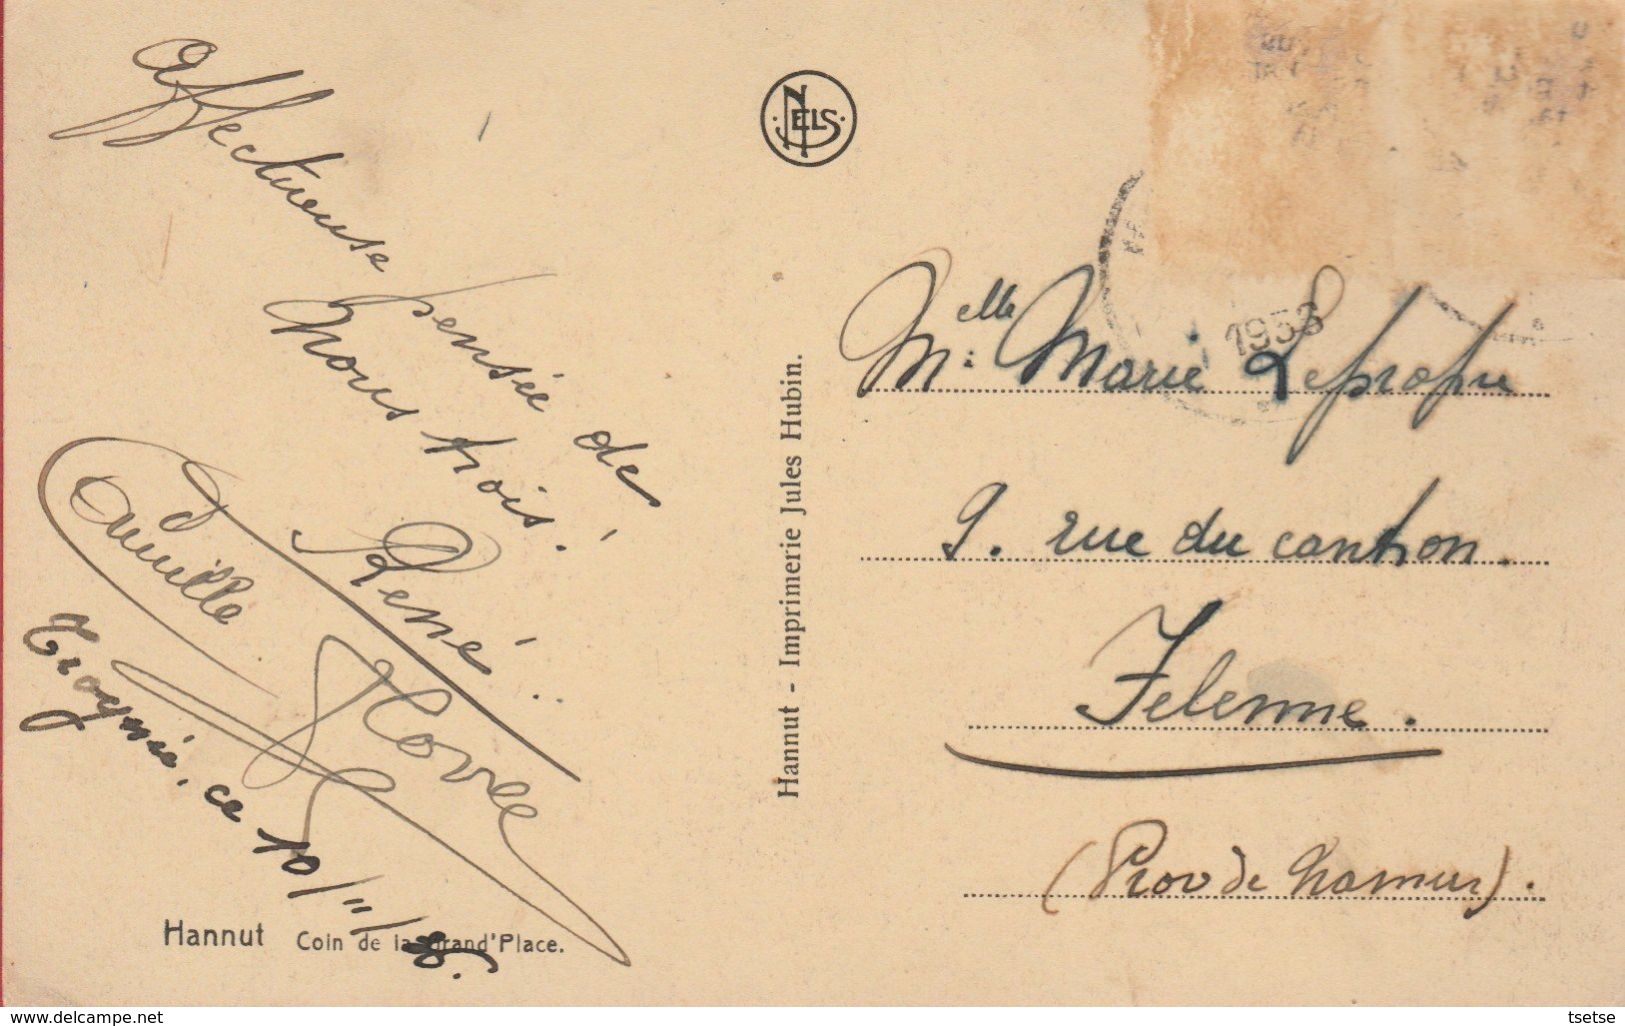 Affectueuse pensée de
nous trois.
René
Camille
Trognée, ce 10/11/36.
Hannut Coin de la Grand'Place.
NELS
Hannut - Imprimerie Jules Hubin.
1936
Melle Marie Lepropre
9. rue du canton.
Felenne.
(Prov de Namur).
www.delcampe.net
tsetse